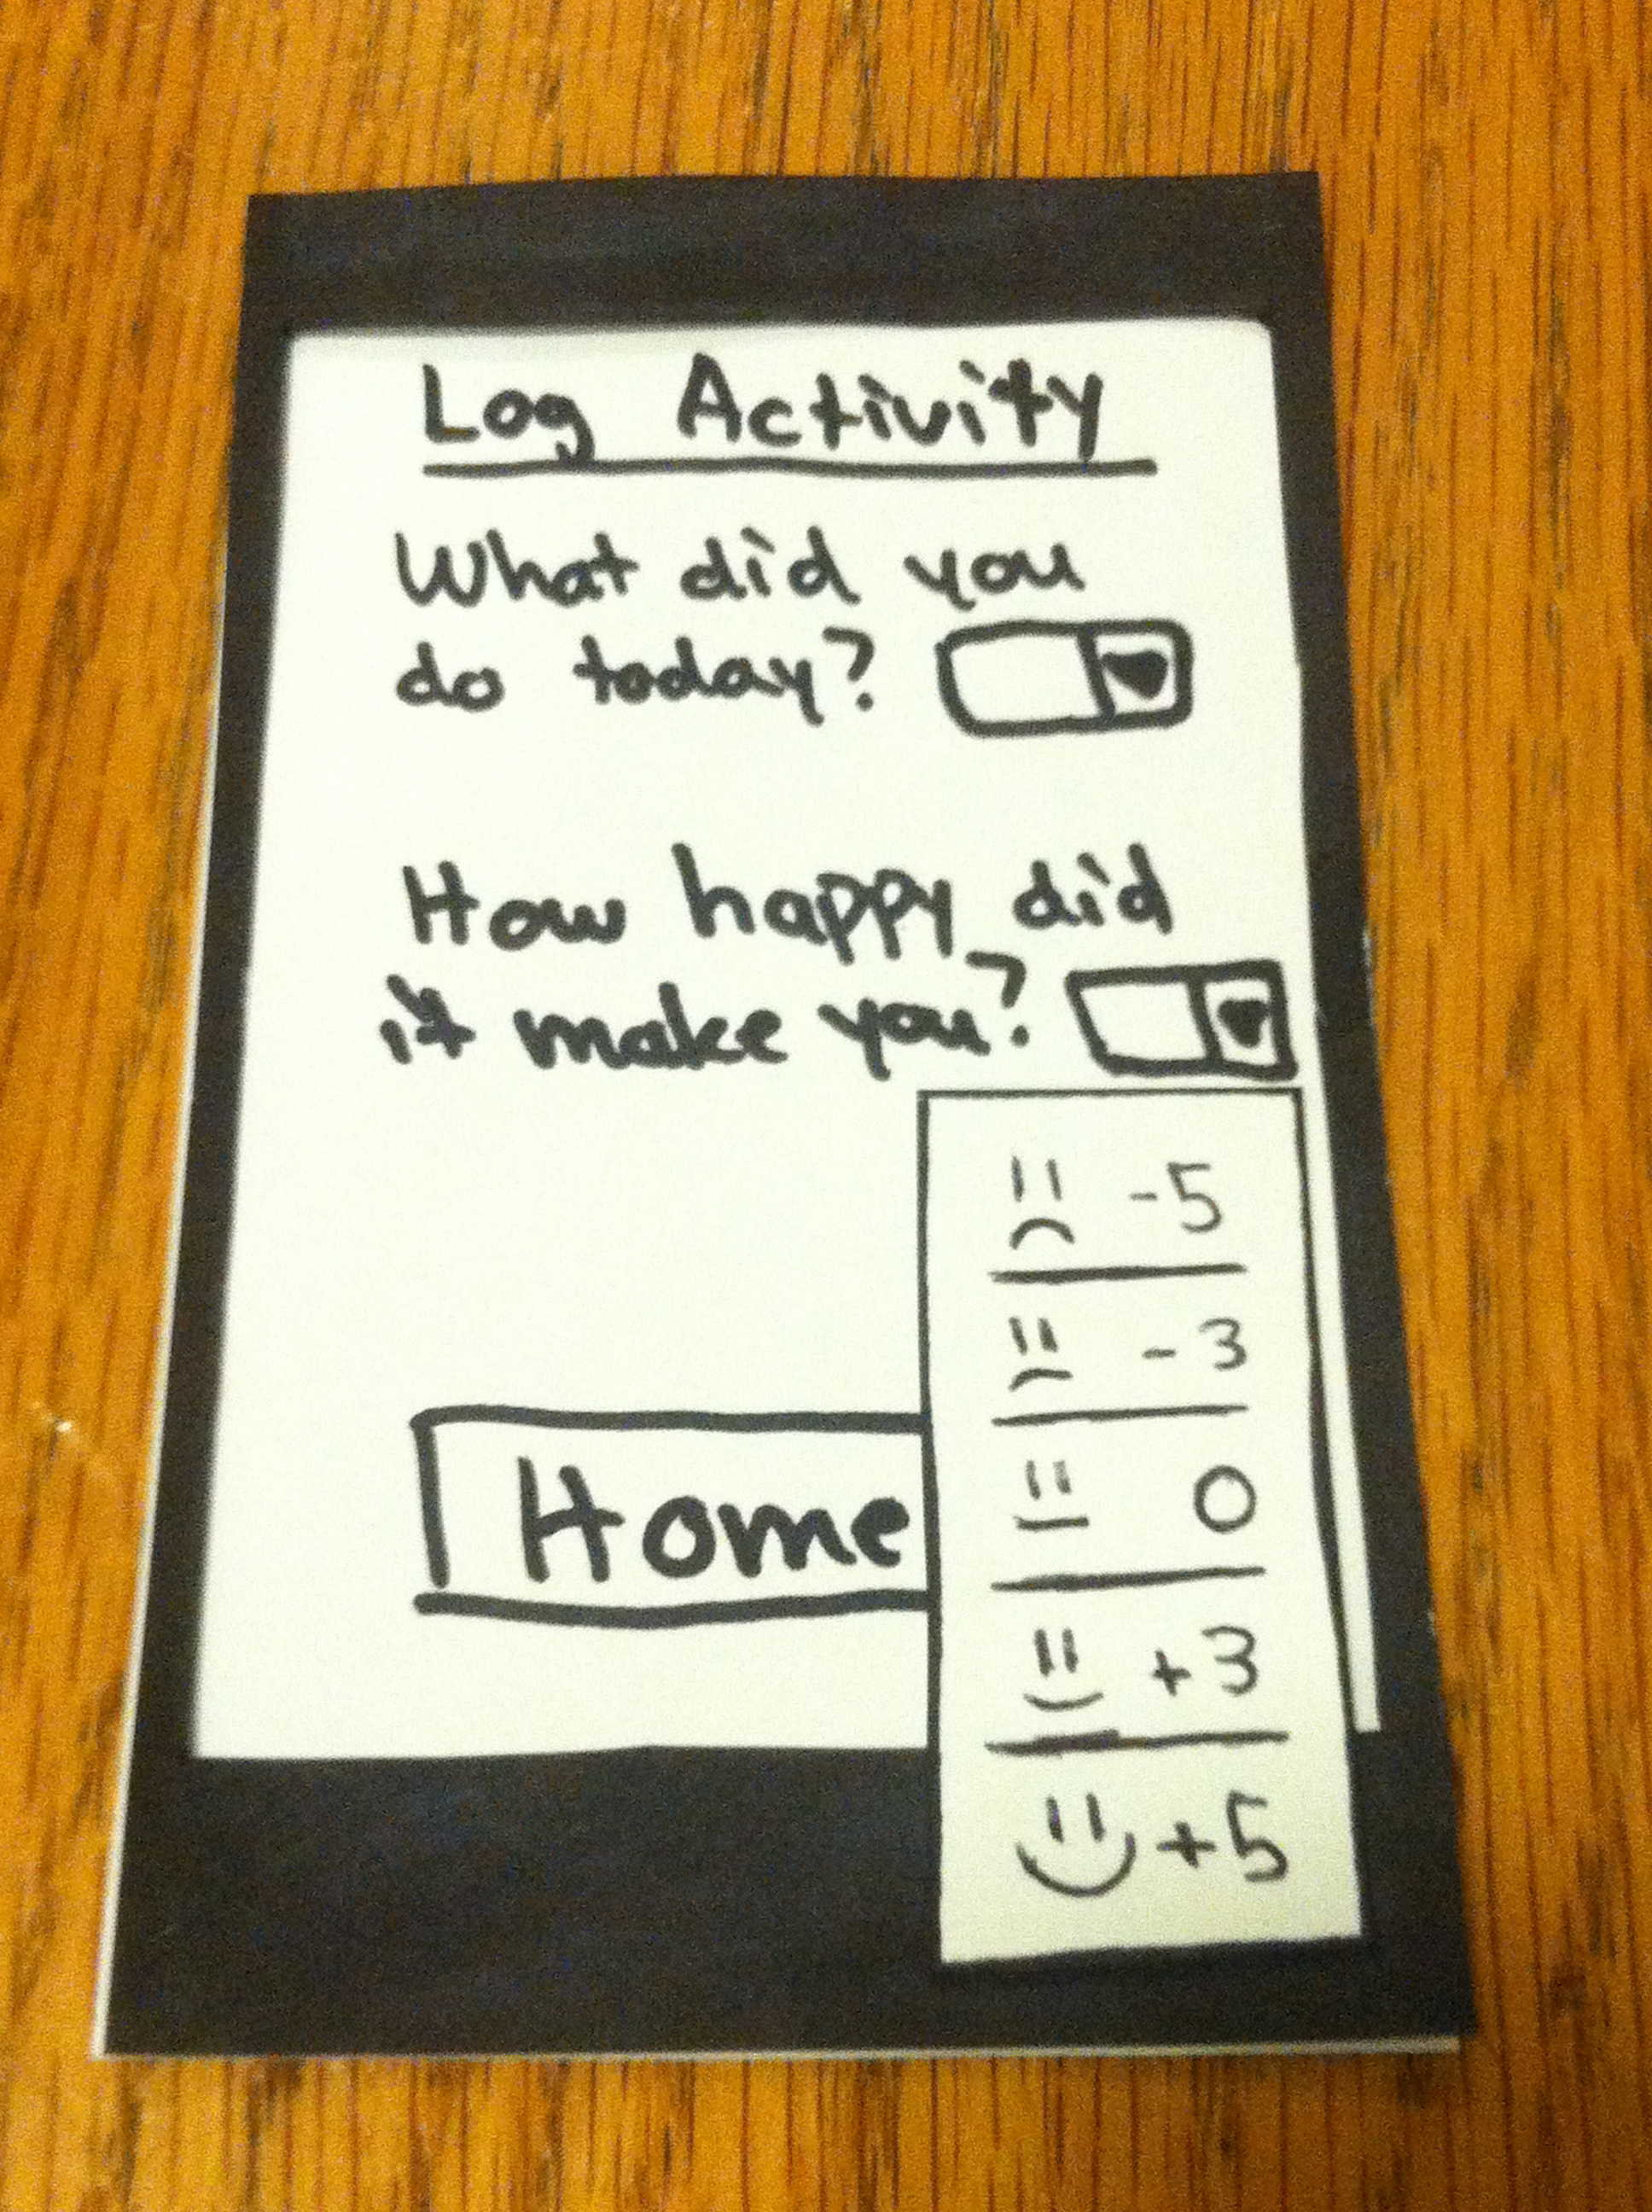 Log Activity
What did you
do today?
How happy did
it make you?
-5
-3
0
+3
+5
Home